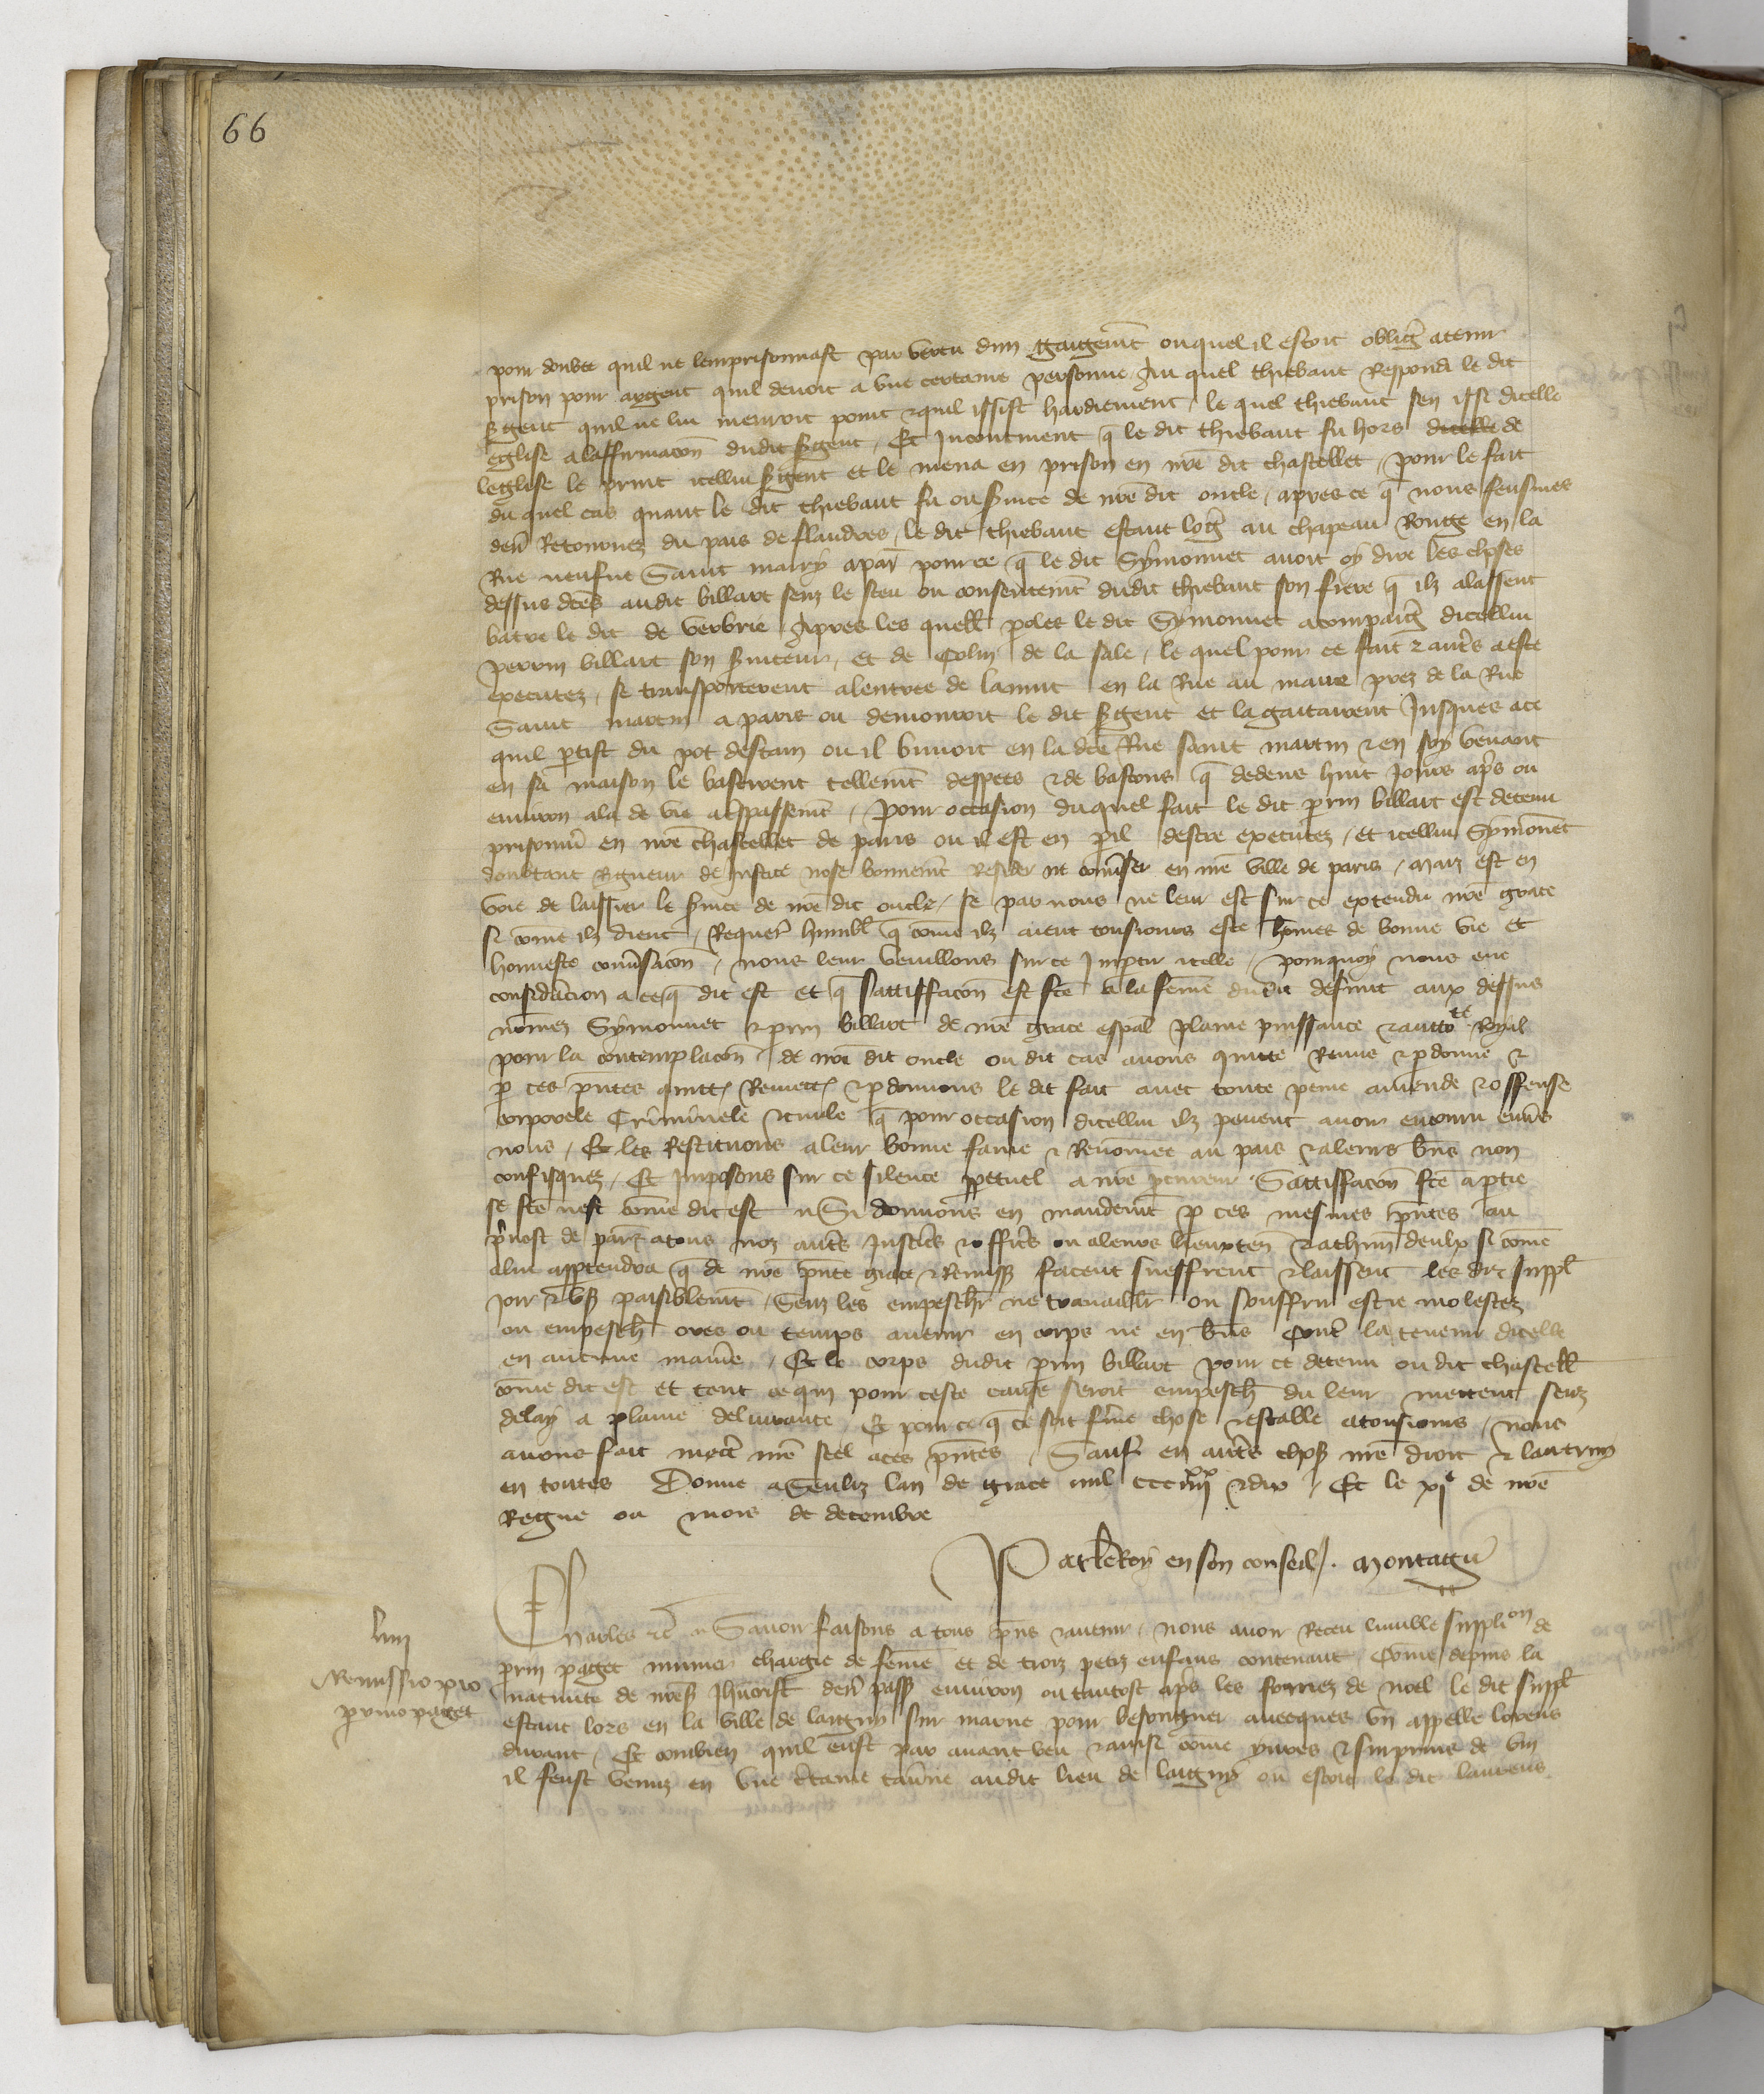 66
pour doubte quil ne lemprisonnast par vertu dun gaigem̄t ouquel il estoit obligē atenir
prison pour argent quil devoit a une certaine personne Au quel thiebaut Respondi le dit
sgent quil ne lui menroit point & quil issist hardiement / le quel thiebaut sen issi dicelle
eglise alaffirmacōn dudit sgent / Et Incontinent q̄ le dit thiebaut fu hors dicelle de
leglise le print icellui sgent et le mena en prison en nrē dit chastellet / pour le fait
du quel cas quant le dit thiebaut fu ou svice de nrē dit oncle / apres ce q̄ nous feusmes
den̄ Retournez du pais de flandres / le dit thiebaut estant logē au chapeau Rouge en la
Rue neufve Saint marry apar̄ pour ce q̄ le dit Symonnet avoit oy dire les choses
dessus dcēs audit billart senz le sceu ou consentem̄t dudit thiebaut son frere q̄ ilz alassent
batre le dit de verbrie / Apres les quell̄ poles le dit Symonnet acompaigē dicellui
perrin billart son sviteur / et de Colin de la sale / le quel pour ce fait & autr̄s a este
executez / se transporterent alentree de lanuit en la Rue au maire prez de la Rue
Saint martin a paris ou demouroit le dit sgent et la gaitairent Jusques ace
quil ptist du pot destain ou il buvoit en la dcē Rue saint martin & en soy venant
en sa maison le batirent tellem̄t despees & de bastons q̄ dedens huit jours apr̄s ou
environ ala de vie a tspassem̄t / Pour occasion duquel fait le dit prin billart est detenu
prisonnī en nrē chastellet de paris ou il est en pil destre executez / et icellui Symonet
doubtant Rigueur de justice nose bonnem̄t Resider ne conv̄ser en nrē ville de paris / maiz est en
voie de laissier le svice de nrē dit oncle / se par nous ne leur est sur ce extendu nrē grace
si com̄e ilz dient / Requer̄ humbl̄ q̄ com̄e ilz aient tousiours este hōmes de bonne vie et
honneste conv̄sacōn / nous leur vueillons sur ce Impartir icelle / pourquoy nous eue
considr̄acion a ceq̄ dit est et q̄ sattiffacōn est fcē a la fem̄e dudit defunt aux dessus
nom̄ez Symonnet & prin billart de nrē grace espāl plaine puissance & auttote Royal
pour la contemplacōn de nrē dit oncle ou dit cas avons quitte Remis & pdonne &
p ces pn̄tes quitt Remett & pdonnons le dit fait avec toute peine amende & offense
corporele Criminele & civile q̄ pour occasion dicellui ilz peuent avoir encouru envs
nous / Et les Restituons aleur bonne fame & Renom̄ee au pais & aleurs bn̄s non
confisquez / Et Imposons sur ce silence ppetuel a nrē pcureur Sattiffacōn fcē a ptie
se fcē nest com̄e dit est Si donnons en mandem̄t p ces mesmes pn̄tes au
pvost de par̄ atous noz autr̄s Justic̄s & offic̄s ou aleurs lieuxten̄ & achūn deulx si com̄e
alui apptendra q̄ de nrē pn̄te grace & Remiss̄ facent sueffrent & laissent les diz suppl̄
joir & us̄ paisiblem̄t / Senz les empeschr̄ ne travaillr̄ ou souffrir estre molestez
ou empesch̄ ores ou temps avenir en corps ne en bn̄s Contr̄ la teneur dicelle
en aucune manīe / Et le corps dudit prin billart pour ce detenu ou dit chastell̄
com̄e dit est et tout ce qui pour ceste cause seroit empesch̄ du leur mettent senz
delay a plaine delivrance Et pour ce q̄ ce soit fm̄e chose & estable a tousiours / nous
avons fait mectr̄ nrē scel aces pn̄tes / Sauf en autr̄s chos̄ nrē droit & lautruy
en toutes Donne a Senliz lan de grace mil ccciiijxx & dix / Et le xje de nrē
Regne ou mois de decembre
Par le Roy en son conseil / . montagu
liiij
Remissio pro
perrino paget
Charles &c̄ Savoir faisons a tous pn̄s & avenir / nous avoir Receu lumble supplion de
prin paget munier chargie de fem̄e et de troiz petiz enfans contenant / Com̄e depuis la
nativite de nres̄ Jhucrist den̄ pass̄ environ ou tantost apr̄s les foiriez de noel le dit suppl̄
estant lors en la ville de laigny sur marne pour besongner avecques un appelle lorens
durant / Et combien quil eust par avant beu & ainsi com̄e yvres & surprins de vin
il feust venuz en une c̄taine tav̄ne audit lieu de laigny ou estoit le dit laurens